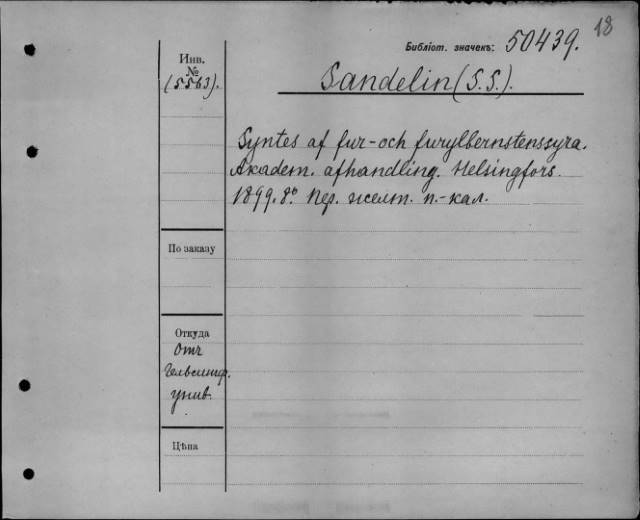 18
Библіот. значекъ: 50439.
Инв.
№
(5563).
Sandelin (S.S.).
Syntes af fur-och furylbernstenssyra.
Akadem. afhandling. Helsingfors.
1899. 8º. Пер. желт. п.-кал.
По заказу
Откуда
Отъ
Гельсингф.
унив.
Цѣна